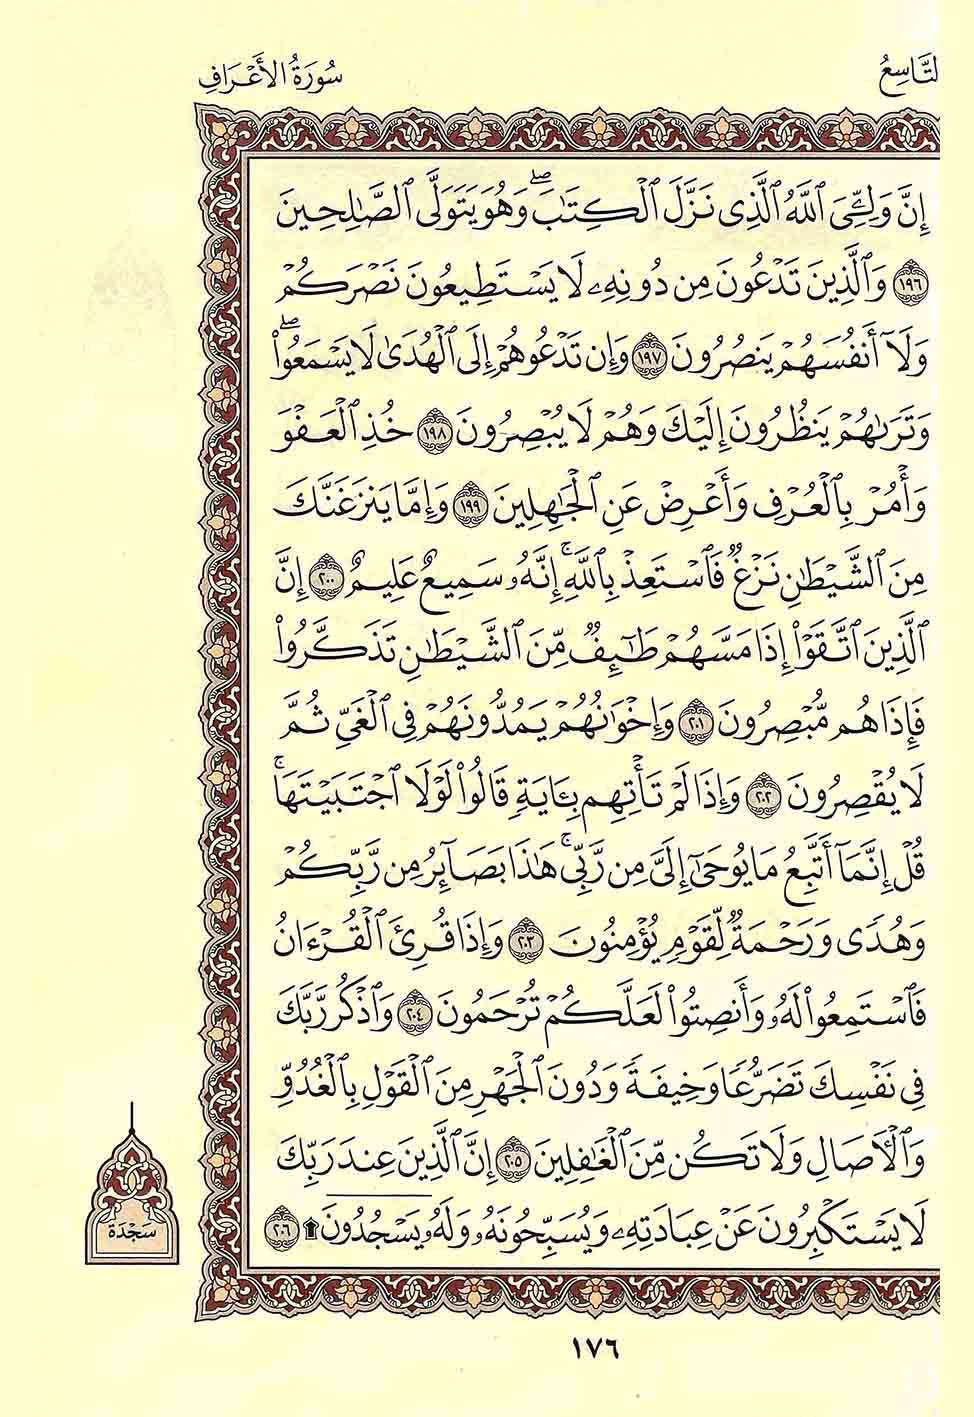 لتَّاسِعُ
سُورَةُ الأَعْرَافِ
إِنَّ وَلِـِّۧيَ ٱللَّهُ ٱلَّذِى نَزَّلَ ٱلْكِتَٰبَ ۖ وَهُوَ يَتَوَلَّى ٱلصَّٰلِحِينَ
١٩٦ وَٱلَّذِينَ تَدْعُونَ مِن دُونِهِۦ لَا يَسْتَطِيعُونَ نَصْرَكُمْ
وَلَآ أَنفُسَهُمْ يَنصُرُونَ ١٩٧ وَإِن تَدْعُوهُمْ إِلَى ٱلْهُدَىٰ لَا يَسْمَعُوا۟ ۖ
وَتَرَىٰهُمْ يَنظُرُونَ إِلَيْكَ وَهُمْ لَا يُبْصِرُونَ ١٩٨ خُذِ ٱلْعَفْوَ
وَأْمُرْ بِٱلْعُرْفِ وَأَعْرِضْ عَنِ ٱلْجَٰهِلِينَ ١٩٩ وَإِمَّا يَنزَغَنَّكَ
مِنَ ٱلشَّيْطَٰنِ نَزْغٌ فَٱسْتَعِذْ بِٱللَّهِ ۚ إِنَّهُۥ سَمِيعٌ عَلِيمٌ ٢٠٠ إِنَّ
ٱلَّذِينَ ٱتَّقَوْا۟ إِذَا مَسَّهُمْ طَٰٓئِفٌ مِّنَ ٱلشَّيْطَٰنِ تَذَكَّرُوا۟
فَإِذَا هُم مُّبْصِرُونَ ٢٠١ وَإِخْوَٰنُهُمْ يَمُدُّونَهُمْ فِى ٱلْغَىِّ ثُمَّ
لَا يُقْصِرُونَ ٢٠٢ وَإِذَا لَمْ تَأْتِهِم بِـَٔايَةٍ قَالُوا۟ لَوْلَا ٱجْتَبَيْتَهَا ۚ
قُلْ إِنَّمَآ أَتَّبِعُ مَا يُوحَىٰٓ إِلَىَّ مِن رَّبِّى ۚ هَٰذَا بَصَآئِرُ مِن رَّبِّكُمْ
وَهُدًى وَرَحْمَةٌ لِّقَوْمٍ يُؤْمِنُونَ ٢٠٣ وَإِذَا قُرِئَ ٱلْقُرْءَانُ
فَٱسْتَمِعُوا۟ لَهُۥ وَأَنصِتُوا۟ لَعَلَّكُمْ تُرْحَمُونَ ٢٠٤ وَٱذْكُر رَّبَّكَ
فِى نَفْسِكَ تَضَرُّعًا وَخِيفَةً وَدُونَ ٱلْجَهْرِ مِنَ ٱلْقَوْلِ بِٱلْغُدُوِّ
وَٱلْءَاصَالِ وَلَا تَكُن مِّنَ ٱلْغَٰفِلِينَ ٢٠٥ إِنَّ ٱلَّذِينَ عِندَ رَبِّكَ
لَا يَسْتَكْبِرُونَ عَنْ عِبَادَتِهِۦ وَيُسَبِّحُونَهُۥ وَلَهُۥ يَسْجُدُونَ ۩ ٢٠٦
سَجْدَة
١٧٦